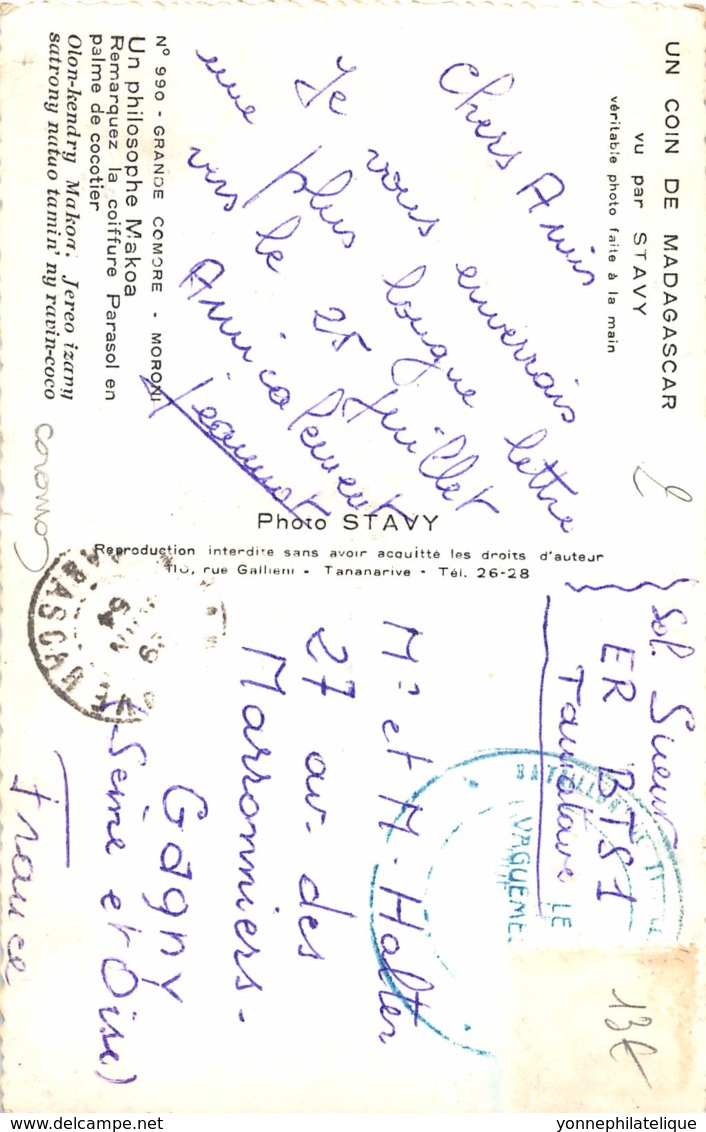 UN COIN DE MADAGASCAR
vu par STAVY
véritable photo faite à la main
Chers Amis
Je vous enverrais
une plus longue lettre
vers le 25 Juillet
Amicalement
Jeannot
N° 990 - GRANDE COMORE - MORONI
Un philosophe Makoa
Remarquez la coiffure Parasol en
palme de cocotier
Olon-kendry Makoa. Jereo izany
satrony natao tamin' ny ravin-coco
Photo STAVY
Reproduction interdite sans avoir acquitté les droits d'auteur
110, rue Gallieni - Tananarive - Tél. 26-28
Sol. Sueur
ER BTS1
Tamatave
BATAILLON DE
LE
VAGUEME
Mr et M. Halter
27 av. des
Marronniers.
Gagny
(Seine et Oise)
France
13€
yonnephilatelique